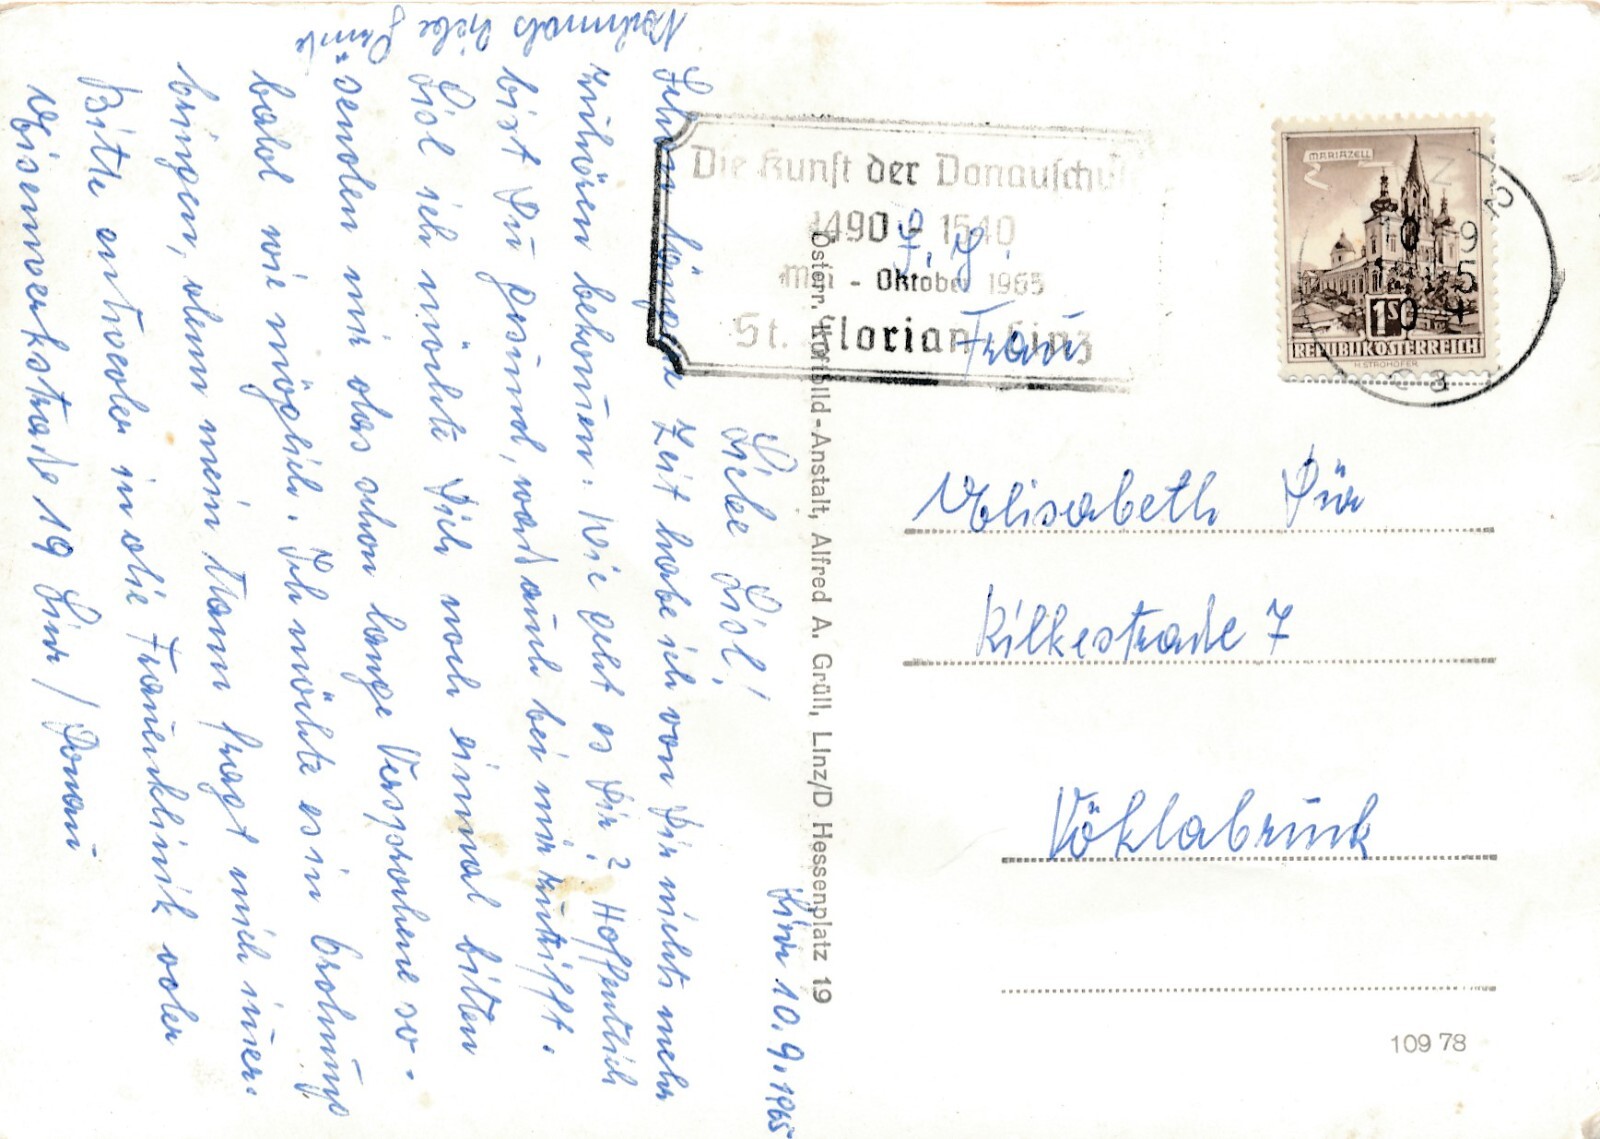 Linz 10.9.1965
Liebe Lisl!
Schon längere Zeit habe ich von Dir nichts mehr
zuhören bekomen. Wie geht es Dir? Hoffentlich
bist Du gesund, was auch bei mir zutrifft.
Lisl ich möchte Dich noch einmal bitten
senden mir das schon lange Versprochene so-
bald wie möglich. Ich möchte es in Ordnung
bringen, denn mein Mann fragt mich imer.
Bitte entweder in die Frauenklinik oder
Eisenwerkstraße 19 Linz / Donau
Nochmals liebe Grüße
Die Kunst der Donauschule
1490 1540
Mai - Oktober 1965
St. Florian Linz
MARIAZELL
1 50
REPUBLIK ÖSTERREICH
H. STROHOFER
Frau
Elisabeth Dür
Rilkestraße 7
Vöklabruck
Österr. Luftbild-Anstalt, Alfred A. Grüll, Linz/D Hessenplatz 19
109 78